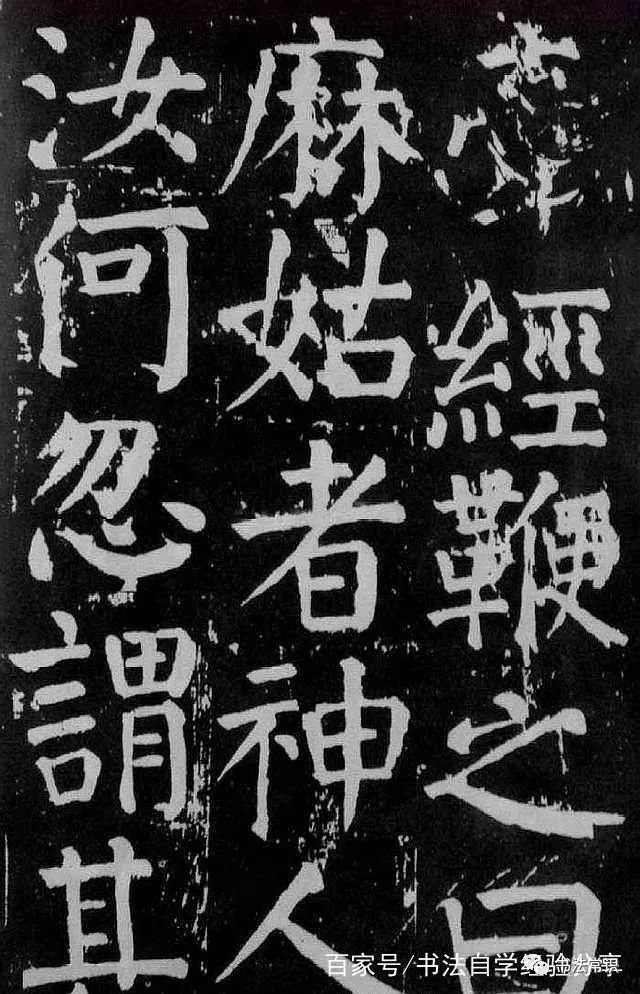 牽經鞭之曰
麻姑者神人
汝何忽謂其
百家号/书法自学经验分享